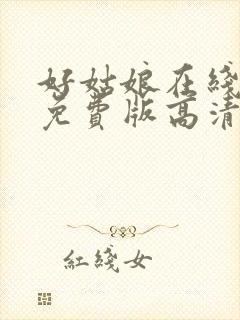 好姑娘在线
免费版高清
红线女